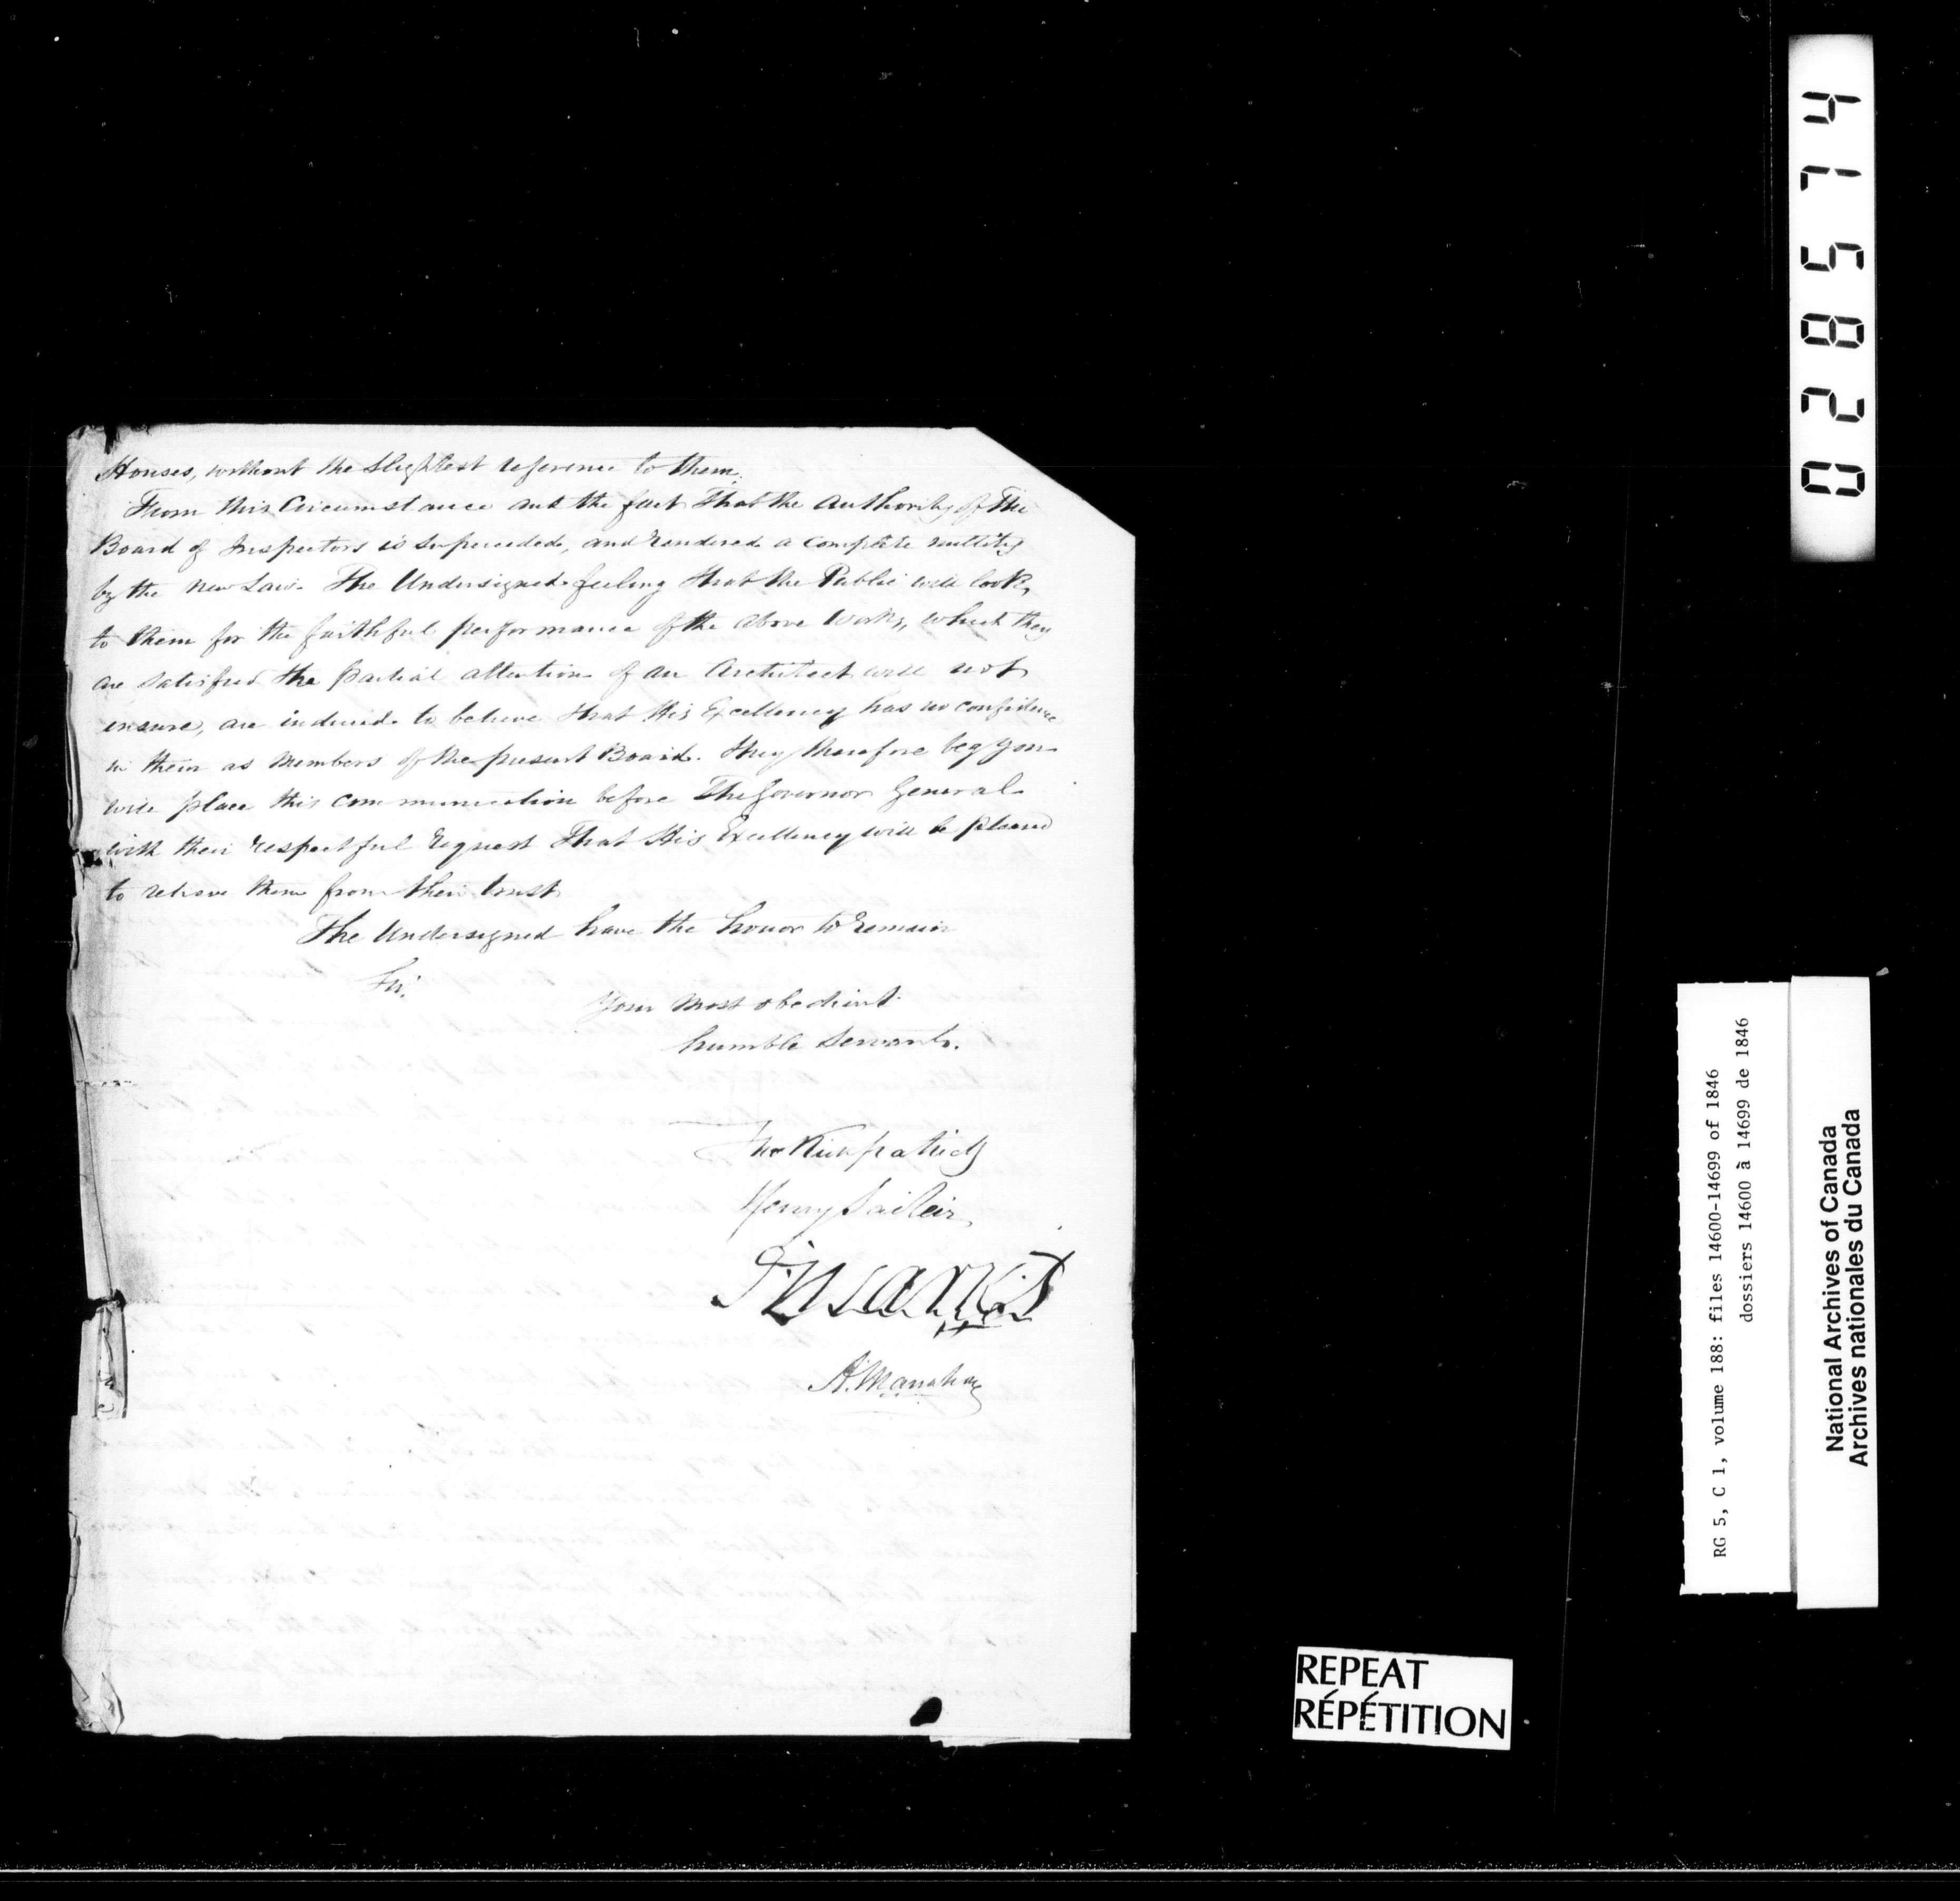 Houses, without the slightest reference to them.
From this Circumstance and the fact That the authority of The
Board of Inspectors is superceded, and rendered a complete nullity
by the new Law. The Undersigned feeling that the Public will look,
to them for the faithful performance of the above Works, which they
are satisfied the partial attention of an Architect will not
ensure, are induced to believe that His Excellency has no confidence
in them as Members of the present Board. They therefore beg you
will place this communication before The Governor General
with their respectful request That His Excellency will be pleased
to relieve them from their trust
The Undersigned have the honor to remain
Sir.
Your most obedient
humble Servants.
Thos Kirkpatrick
Henry
A. Manahan
024 5874
REPEAT
RÉPÉTITION
RG 5, C 1, volume 188: files 14600-14699 of 1846
dossiers 14600 à 14699 de 1846
National Archives of Canada
Archives nationales du Canada